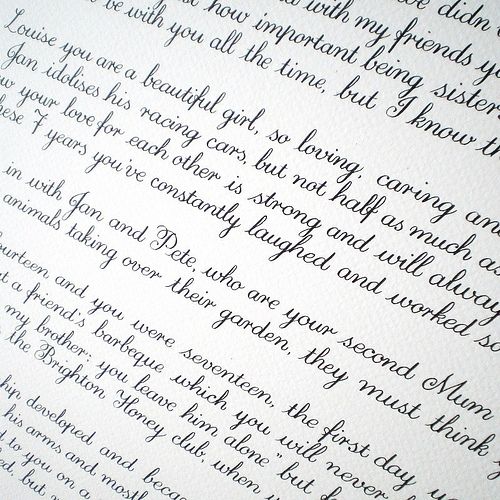 ve didn
with my friends y
how important being sister
be with you all the time, but I know th
Louise you are a beautiful girl, so loving, caring an
Jan idolises his racing cars, but not half as much as
your love for each other is strong and will alway
hese 7 years you've constantly laughed and worked so
in with Jan and Pete, who are your second Mum
animals taking over their garden, they must think
urteen and you were seventeen, the first day
t a friend's barbeque which you will never
my brother; you leave him alone" but
the Brighton Honey club, when
hip developed and beca
his arms and mostl
to you on a
ed, but